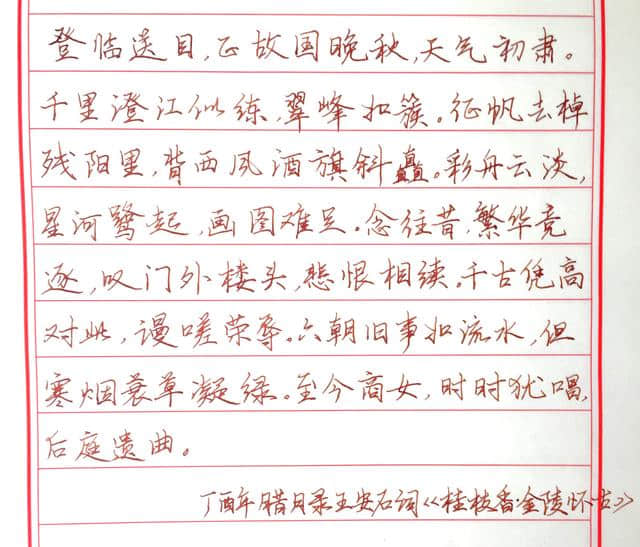 登临送目，正故国晚秋，天气初肃。
千里澄江似练，翠峰如簇。征帆去棹
残阳里，背西风酒旗斜矗。彩舟云淡，
星河鹭起，画图难足。念往昔，繁华竞
逐，叹门外楼头，悲恨相续。千古凭高
对此，谩嗟荣辱。六朝旧事如流水，但
寒烟衰草凝绿。至今商女，时时犹唱，
后庭遗曲。
丁酉年腊月录王安石词《桂枝香·金陵怀古》